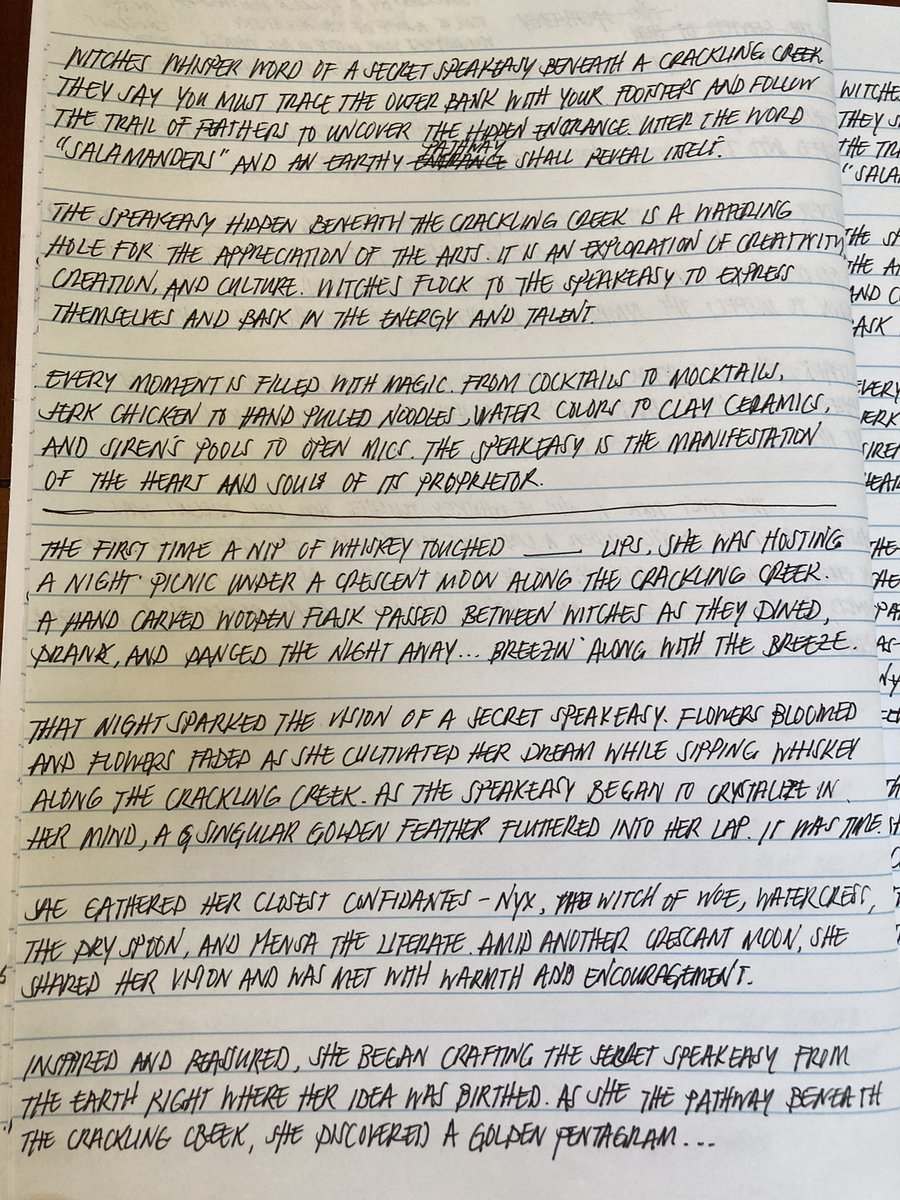 WITCHES WHISPER WORD OF A SECRET SPEAKEASY BENEATH A CRACKLING CREEK
THEY SAY YOU MUST TRACE THE OUTER BANK WITH YOUR FOOTSTEPS AND FOLLOW
THE TRAIL OF FEATHERS TO UNCOVER THE HIDDEN ENTRANCE. UTTER THE WORD
PATHWAY
"SALAMANDERS" AND AN EARTHY ENTRANCE SHALL REVEAL ITSELF.
THE SPEAKEASY HIDDEN BENEATH THE CRACKLING CREEK IS A WATERING
HOLE FOR THE APPRECIATION OF THE ARTS. IT IS AN EXPLORATION OF CREATIVITY
CREATION, AND CULTURE. WITCHES FLOCK TO THE SPEAKEASY TO EXPRESS
THEMSELVES AND BASK IN THE ENERGY AND TALENT.
EVERY MOMENT IS FILLED WITH MAGIC. FROM COCKTAILS TO MOCKTAILS,
JERK CHICKEN TO HAND PULLED NOODLES, WATER COLORS TO CLAY CERAMICS,
AND SIREN'S POOLS TO OPEN MICS. THE SPEAKEASY IS THE MANIFESTATION
OF THE HEART AND SOUL OF ITS PROPRIETOR.
THE FIRST TIME A NIP OF WHISKEY TOUCHED ____ LIPS, SHE WAS HOSTING
A NIGHT PICNIC UNDER A CRESCENT MOON ALONG THE CRACKLING CREEK.
A HAND CARVED WOODEN FLASK PASSED BETWEEN WITCHES AS THEY DINED,
DRANK, AND DANCED THE NIGHT AWAY... BREEZIN' ALONG WITH THE BREEZE.
THAT NIGHT SPARKED THE VISION OF A SECRET SPEAKEASY. FLOWERS BLOOMED
AND FLOWERS FADED AS SHE CULTIVATED HER DREAM WHILE SIPPING WHISKEY
ALONG THE CRACKLING CREEK. AS THE SPEAKEASY BEGAN TO CRYSTALIZE IN
HER MIND, A SINGULAR GOLDEN FEATHER FLUTTERED INTO HER LAP. IT WAS TIME.
SHE GATHERED HER CLOSEST CONFIDANTES - NYX, THE WITCH OF WOE, WATERCRESS,
THE DRY SPOON, AND MENSA THE LITERATE. AMID ANOTHER CRESCANT MOON, SHE
SHARED HER VISION AND WAS MET WITH WARMTH AND ENCOURAGEMENT.
INSPIRED AND REASSURED, SHE BEGAN CRAFTING THE SECRET SPEAKEASY FROM
THE EARTH RIGHT WHERE HER IDEA WAS BIRTHED. AS SHE THE PATHWAY BENEATH
THE CRACKLING CREEK, SHE DISCOVERED A GOLDEN PENTAGRAM...